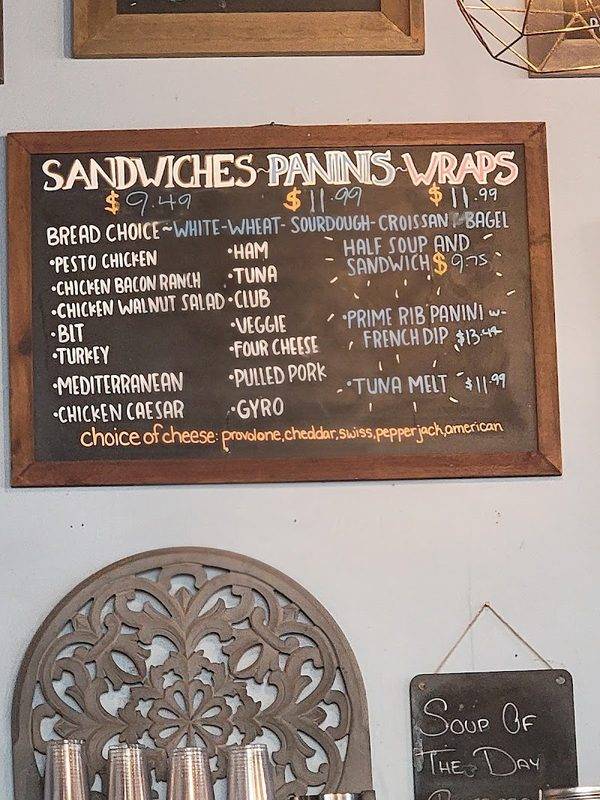 SANDWICHES~PANINIS~WRAPS
$9.49 $11.99 $11.99
BREAD CHOICE~WHITE-WHEAT-SOURDOUGH-CROISSANT-BAGEL
•PESTO CHICKEN
•CHICKEN BACON RANCH
•CHICKEN WALNUT SALAD
•BIT
•TURKEY
•MEDITERRANEAN
•CHICKEN CAESAR
•HAM
•TUNA
•CLUB
•VEGGIE
•FOUR CHEESE
•PULLED PORK
•GYRO
HALF SOUP AND
SANDWICH $9.75
•PRIME RIB PANINI w-
FRENCH DIP $13.49
•TUNA MELT $11.99
choice of cheese: provolone,cheddar,swiss,pepper jack,american
SOUP OF
THE DAY